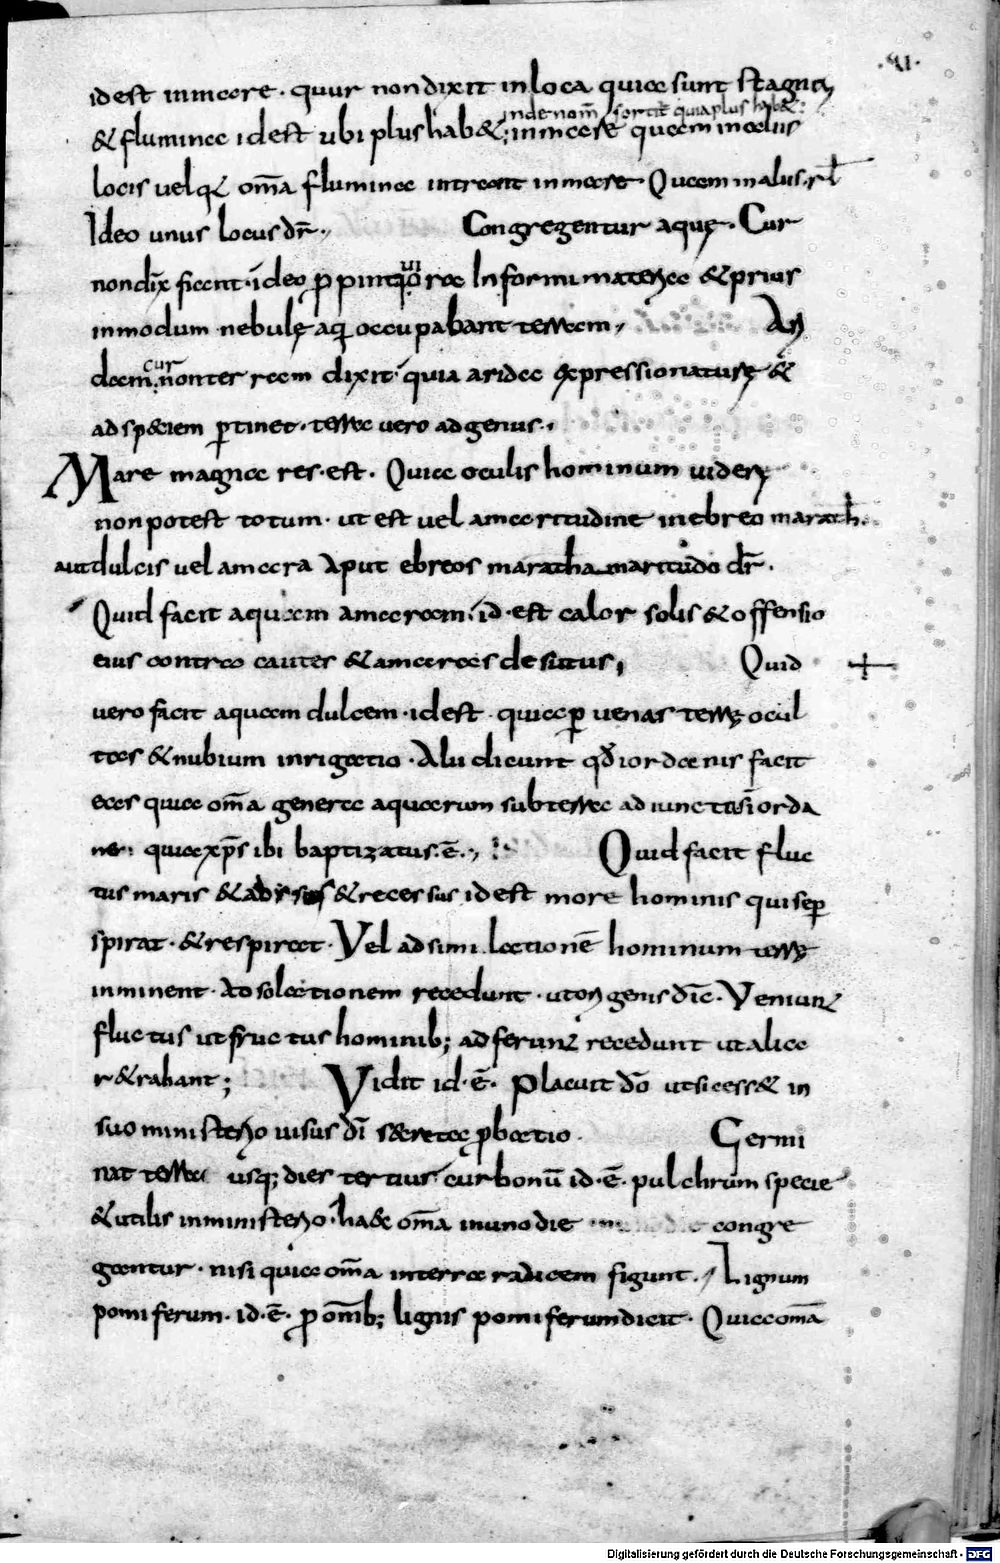 .VI.
id est in mare · quur non dixit in loca quia sunt stagna
inde nom̄ sortit̄ quia plus hab&:
& flumina id est ubi plus hab&; in mare quam in aliis
locis uel qꝫ om̄a flumina intrant in mare· Quam in aliis· uł
Ideo unus locus dr̄·,
Congregentur aquę· Cur
non dix̄ siccent· ideo ꝑ pinquiorae In formi materiae & prius
in modum nebulę aq̨ occupabant terram,
Ari
cur
dam· non terram dixit· quia arida expressio naturę &
ad speciem ꝑtinet· terra uero ad genus·,
Mare magna res· est· Quia oculis hominum uideri
non potest totum· ut est uel amaritudine in ebreo marath·
aut dulcis uel amara Aput ebreos maratha maritudo dr̄·
Quid facit aquam amaram· id· est calor solis & offensio
eius contra cautes & amaras desutus,
Quid +
uero facit aquam dulcem· id est· quia ꝑ uenas terrę ocul
tas & nubium inrigatio· Alii dicunt qd̄ iordanis facit
eas quia om̄a genera aquarum sub terra ad iuncta si iorda
ner· quia xp̄s ibi baptizatus· ē·,
Quid facit fluc
tus maris & adrsus & recessus id est more hominis qui semꝑ
spirat· & respirat· Vel adsimilationē hominum terrę
inminent· Ad solationem recedunt· ut origenis dic̄· Veniunt
fluctus ut fructus hominib; ad ferunt recedunt ut alia
r&rabant;
Vidit id· ē· Placuit dō ut sicess& in
suo ministerio uisus dī secreta ꝓbatio·
Germi
nat terra usq; dies tertius cur bonū id· ē· pulchrum specie
& utilis in ministerio· haec om̄a in uno die congre
gantur· nisi quia om̄a in terra radicem figunt·, Lignum
pomiferum· id· ē· ꝓ om̄ib; lignis pomiferum dicit· Quia om̄a
Digitalisierung gefördert durch die Deutsche Forschungsgemeinschaft - DFG